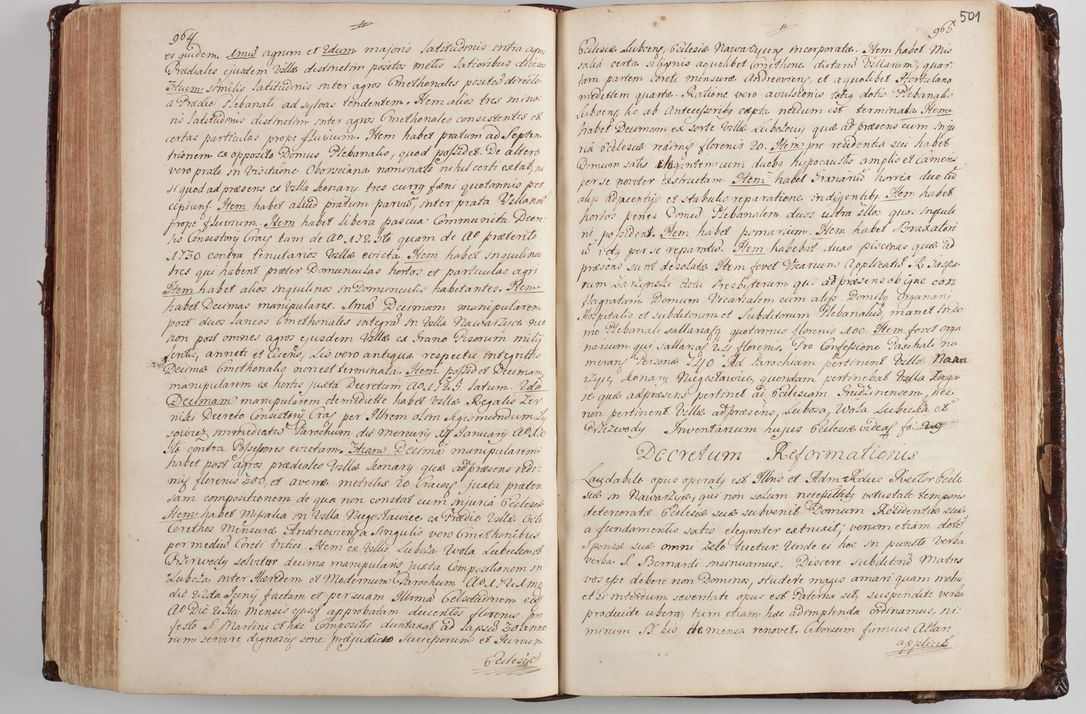 964
et quidem Imus agrum et 2dum majoris latitudinis intra agros
Prædiales ejusdem Villæ distinctim positos metis Sationibus
3tium similis latitudinis inter agros Cmethonales positos directe
a Prædio Plebanali ad sylvas tendentem. Item alios tres minoris
latitudinis distinctim inter agros Cmethonales consistentes et
certas particulas prope fluvium. Item habet pratum ad Septen
trionem ex opposito Domus Plebanalis, quod possidet. De altero
vero prato in Visitaõne Oborsciana nominato nihil certi
si quod ad præsens ex Villa Konary tres currus fæni quotannis per
cipiens. Item habet aliud pratum parvum, inter prata Villanor
prope fluvium. Item habet libera pascua Communita Decre
tis Consistory Crac tam de Ao. quam de Ao præterito
1730 contra tenutarios Villæ evicta. Item habet Inquilinos
tres qui habent præter Domunculas hortos et particulas agri
Item habet alios inquilinos in Domunculis habitantes. Item
habet Decimas manipulares. Imã Decimam manipularem
post duos laneos Cmethonales integrã in Villa Nawarzyce nec
non post omnes agros ejusdem Villæ ex Grano Pisorum milij
lentis, anneti et Ciceris, Lis vero antiqua respectu integritatis
Decimæ Cmethonalis non est terminata. Item possidet Decimam
manipularem ex hortis juxta Decretum Ao. latum. 2da
Decimam manipularem de medietate habet Villæ Regalis Zer
niki Decreto Consistory Crac per Illrem olim Sigismundum
immediatum Parochum die Mercury 17 January Ao.
contra Possessores evictam. 3tiam Decimã manipularem
habet post agros prædiales Villæ Konary quæ ad præsens redi
mit florenis 200, et avenæ metretis 20 Cracov juxta præten
sam compositionem de qua non constat cum injuria Ecclesiæ
Item habet Missalia in Villa Niegosławice ex Prædio Villæ Octo
Coretos Mensuræ Andreoviensis Singulis vero Cmethonibus
per medium Coreti tritici Item ex Villis Lubcza Wola Lubecka et
Przezwody solvitur decima manipularis juxta Compositionem in
Lubcza inter Hæredem et Modernum Parochum Ao.
die 2da Juny factam et per suam Illmã Celsitudinem eod
Ao Die mensis ejusd approbatam ducentos florenos pro
festo S. Martini et hæc Compositio duntaxat ad lapsum 30 anno
rum servare dignoscitur sine præjudicio Successorum et Jurium
Ecclesiæ
501
965
Ecclesiæ Lubcens, Ecclesiæ Nawarzycens incorporatæ. Item habet Mis
salia certa siliginis a quolibet Cmethone dictarum Villarum, quar
tam partem Coreti mensuræ Andreoviens, et a quolibet Hortulano
medietatem quartæ. Ratione vero avulsionis totius dotis Plebanalis
Lubcens lis ab Antecessoribus cæpta nedum est terminata. Item
habet Decimam ex sorte Villæ quæ ad præsens cum Inju
ria Ecclesiæ redimit florenis 20. Item pro residentia sui habet
Domum satis elegantem cum duobus hypocaustis amplis et cameris
per se noviter extructam. Item habet Granariũ horrea duo cum
alijs adjacentijs et stabulis reparatione indigentibus Item habet
hortos penes Domũ Plebanalem duos ultra illos quos inquili
ni possident. Item habet pomarium. Item habet
per se reparatum. Item habebat duas piscinas quæ ad
præsens sunt desolatæ Item fovet Vicarium Applicatum R. Gaspa
rum Actu Presbyterum qui ad præsens ob igne con
flagratam Domum Vicarialem cum alijs Domibus Organarij
Hospitalis et subditorum et Subditorum Plebanalium, manet in do
mo Plebanali sallariatus quotannis florenis 100. Item fovet orga
narium qui sallariatur 24 florenis. Pro Confessione Paschali nu
merantur Personæ 740 Ad Parochiam pertinent Villæ Nawa
rzyce, Konary, Niegosławice, quondam pertinebat Villa
quæ ad præsens pertinet ad Ecclesiam Grudzinensem, nec
non pertinent Villæ ad præsens, Lubcza, Wola Lubecka et
Przezwody Inventarium hujus Ecclesiæ videas fo: 29
Decretum Reformationis
Laudabile opus operatus est Illris et Adm Rdus Rector Eccle
siæ in Nawarzyce, qui non solum necessitatibus vetustate temporis
deterioratæ Ecclesiæ suæ subvenit Domum Residentiæ suæ
a fundamentis satis eleganter extruxit, verum etiam dotem
Sponsæ suæ omni zelo tuetur. Unde ei hoc in puncto verba
verba S. Bernardi insinuamus. Discere Subditorũ Matres
vos esse debere non Dominos, studete magis amari quam metui
et si interdum severitate opus est Paterna sit, suspendite verba
producite ubera, tum etiam hæc adimplenda ordinamus, ni
mirum SS. bis de mense renovet. Ciborium firmius Altari
applicet